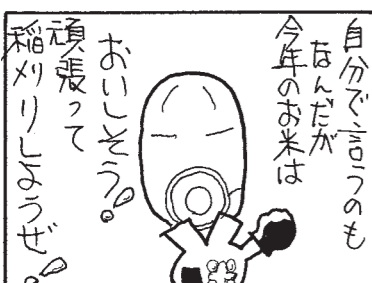 自分で言うのも
なんだが
今年のお米は
おいしそう!
頑張って
稲刈りしようぜ!